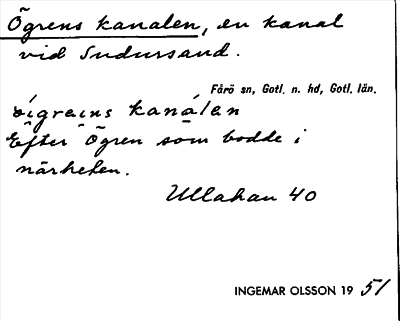 Ögrens kanalen, en kanal
vid Sudursand.
Fårö sn, Gotl. n. hd, Gotl. län.
kanálen
Efter Ögren som bodde i
närheten.
Ullahau 40
INGEMAR OLSSON 19 51